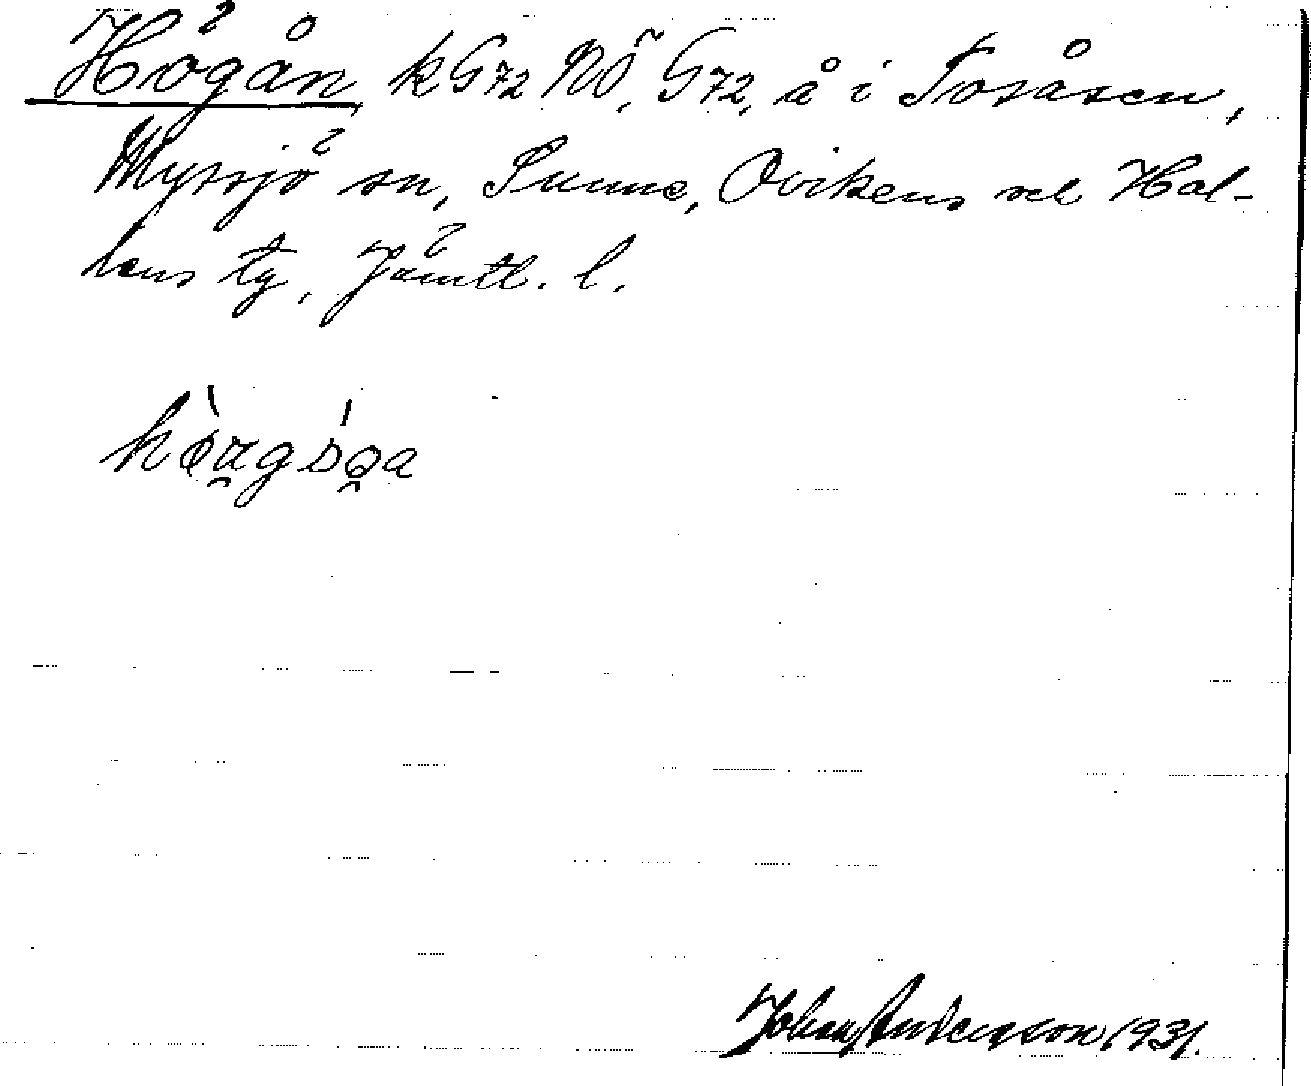 Högån, k G72 NÖ, G72, å i Tossåsen,
Myssjö sn, Sunne, Ovikens och Hal-
lens tg, Jämtl. l.
Johan Andersson 1931.